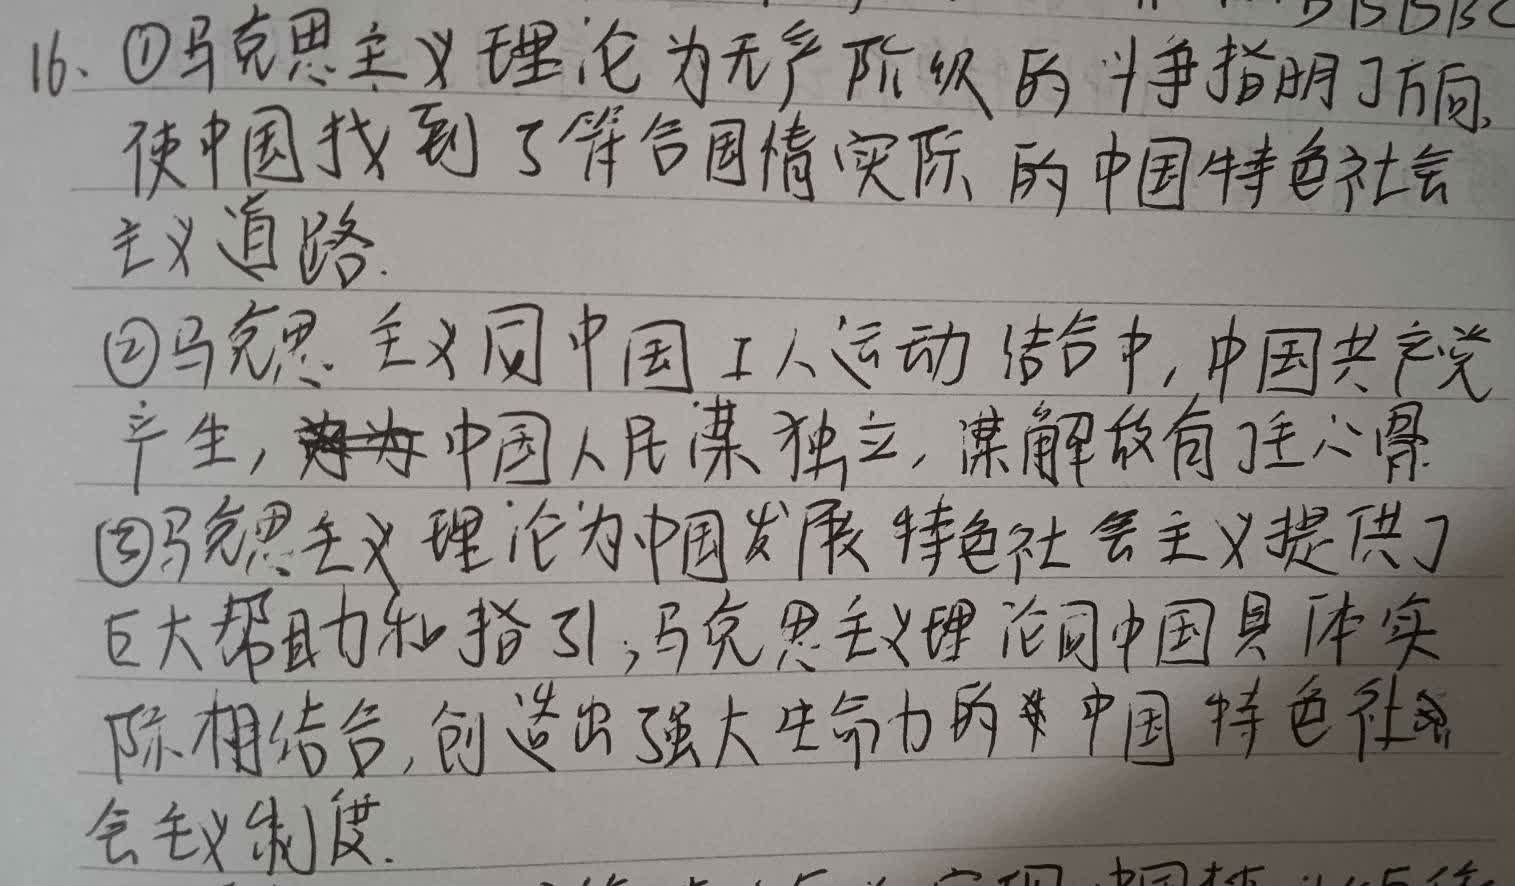 BBBBC
16、①马克思主义理论为无产阶级的斗争指明了方向,
使中国找到了符合国情实际的中国特色社会
主义道路.
②马克思主义同中国工人运动结合中,中国共产党
产生,中国人民谋独立,谋解放有了主心骨.
③马克思主义理论为中国发展特色社会主义提供了
巨大帮助和指引;马克思主义理论同中国具体实
际相结合,创造出强大生命力的中国特色社
会主义制度.